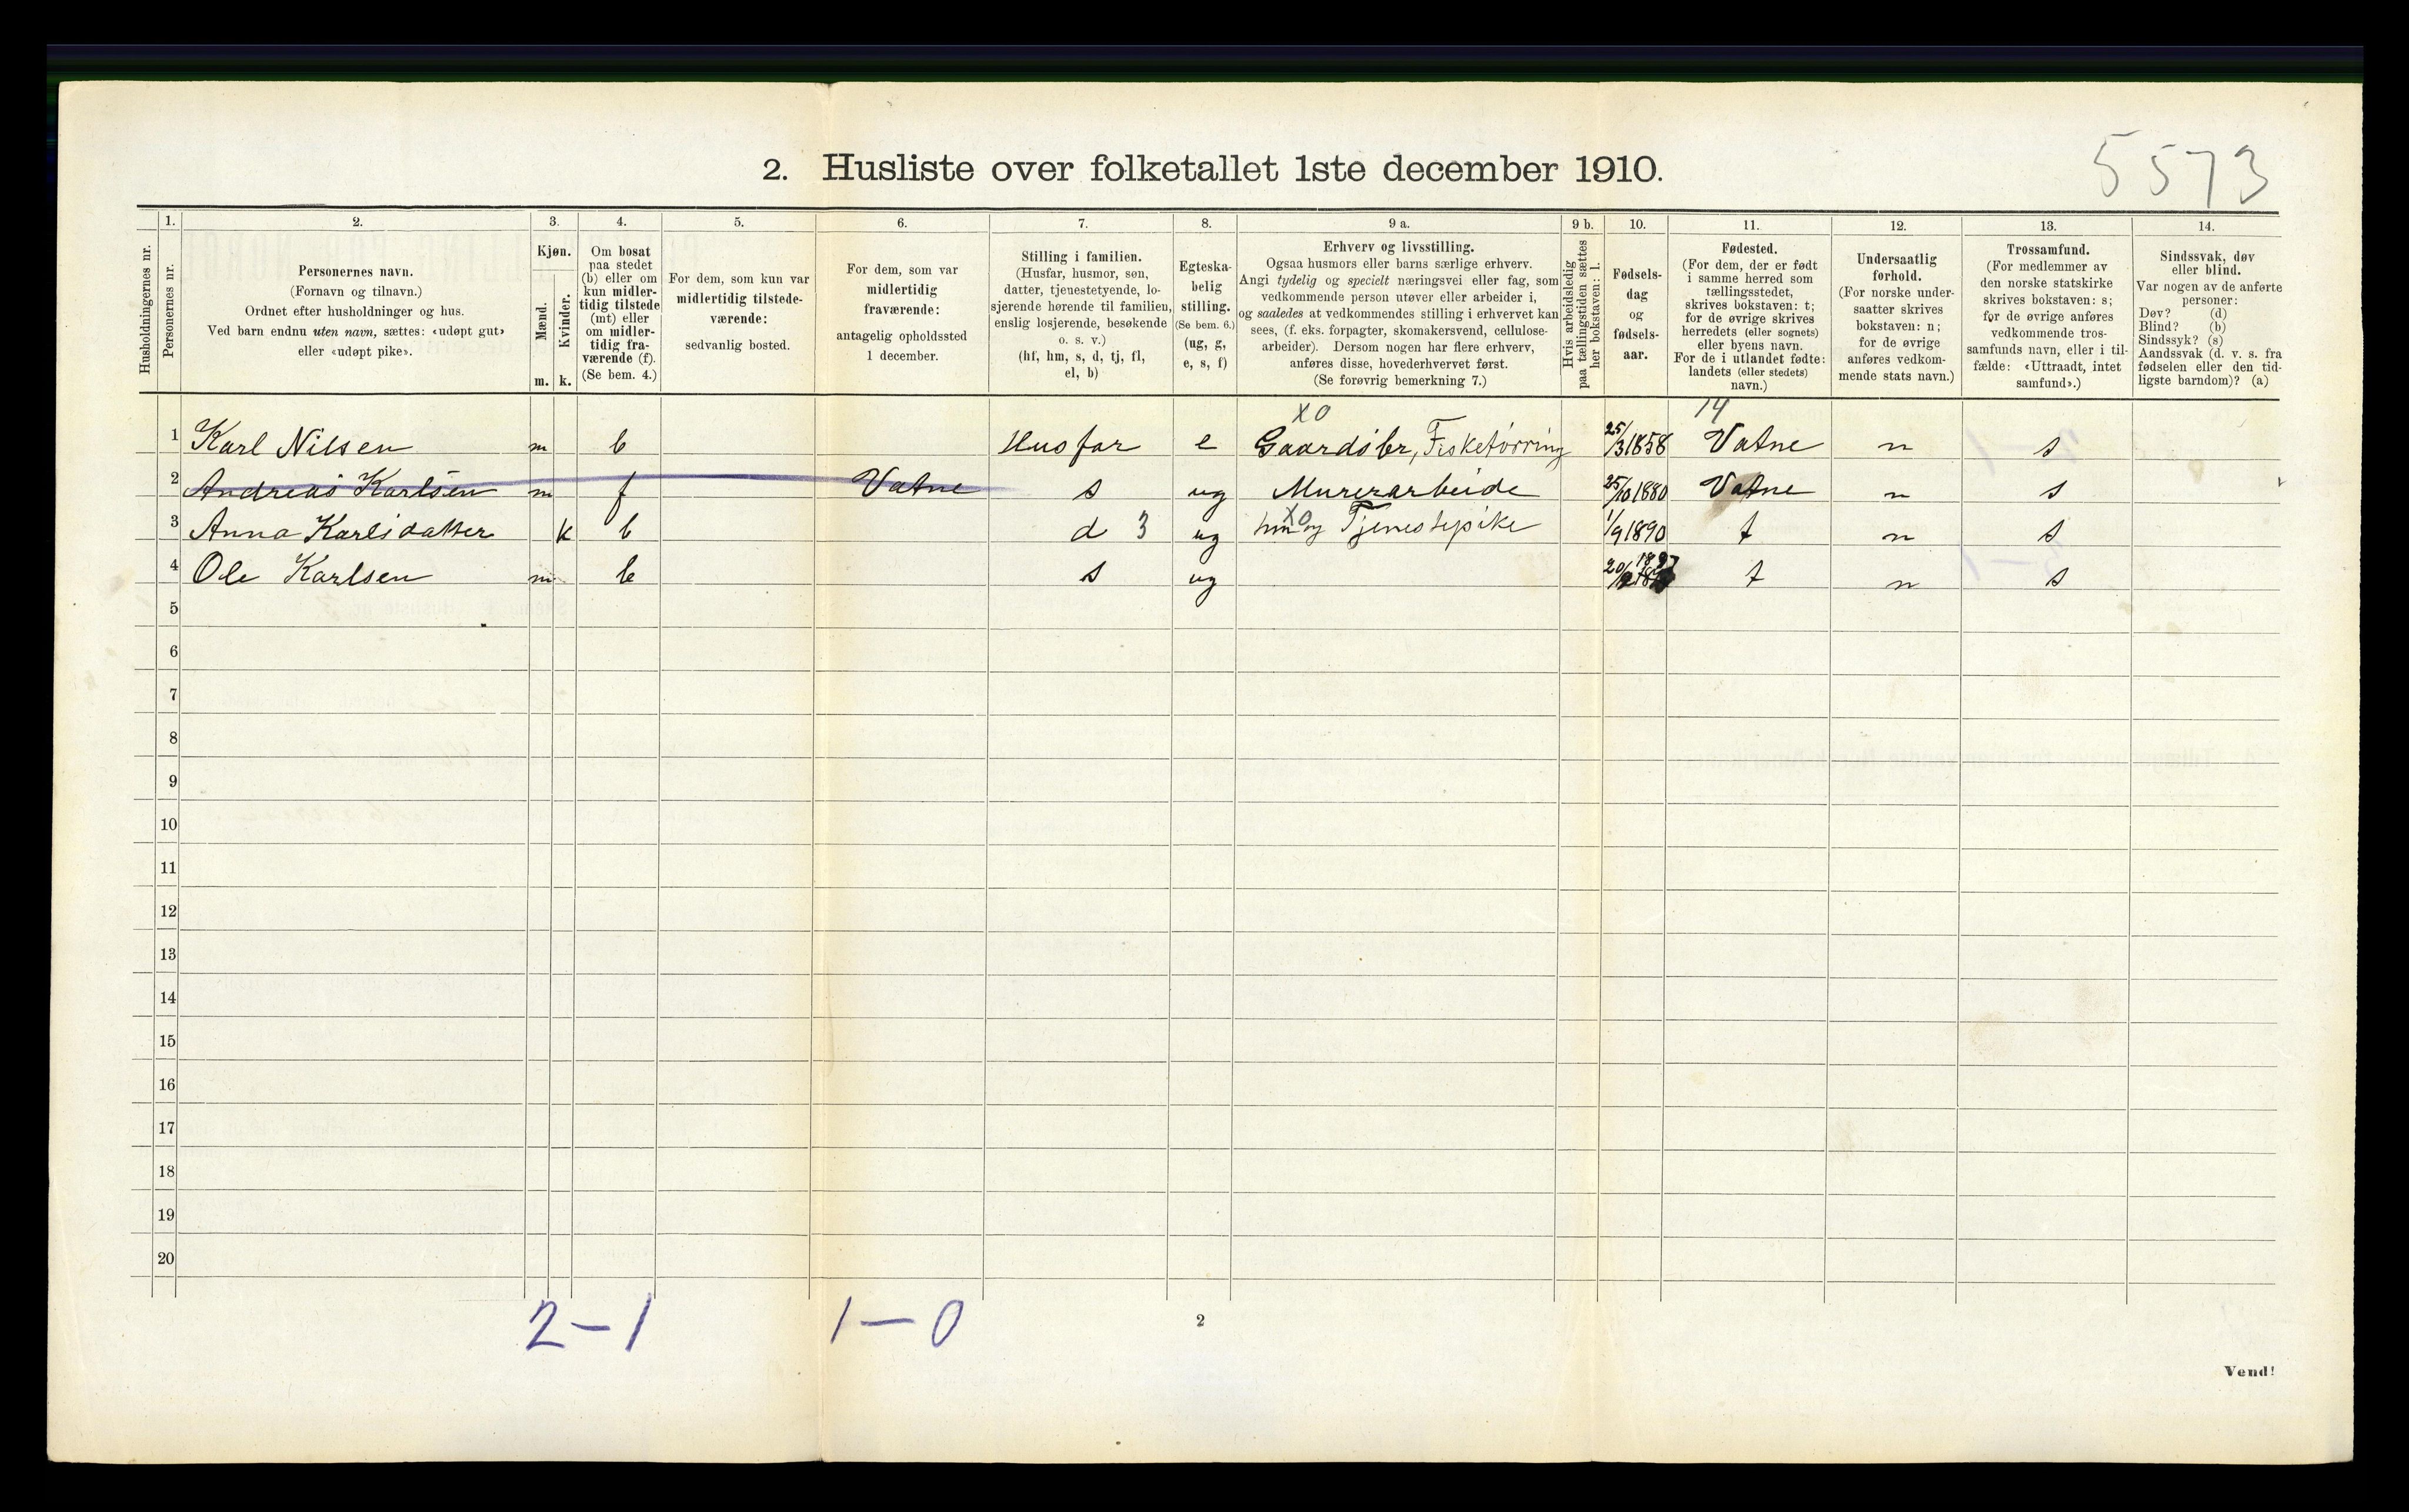 2. Husliste over folketallet 1ste december 1910.
5573
Husholdningernes nr.
1.
Personernes nr.
2.
Personernes navn.
(Fornavn og tilnavn.)
Ordnet efter husholdninger og hus.
Ved barn endnu uten navn, sættes: «udøpt gut»
eller «udøpt pike».
3.
Kjøn.
Mænd.
Kvinder.
m. k.
4.
Om bosat
paa stedet
(b) eller om
kun midler-
tidig tilstede
(mt) eller
om midler-
tidig fra-
værende (f).
(Se bem. 4.)
5.
For dem, som kun var
midlertidig tilstede-
værende:
sedvanlig bosted.
6.
For dem, som var
midlertidig
fraværende:
antagelig opholdssted
1 december.
7.
Stilling i familien.
(Husfar, husmor, søn,
datter, tjenestetyende, lo-
sjerende hørende til familien,
enslig losjerende, besøkende
o. s. v.)
(hf, hm, s, d, tj, fl,
el, b)
8.
Egteska-
belig
stilling.
(Se bem. 6.)
(ug, g,
e, s, f)
9 a.
Erhverv og livsstilling.
Ogsaa husmors eller barns særlige erhverv.
Angi tydelig og specielt næringsvei eller fag, som
vedkommende person utøver eller arbeider i,
og saaledes at vedkommendes stilling i erhvervet kan
sees, (f. eks. forpagter, skomakersvend, cellulose-
arbeider). Dersom nogen har flere erhverv,
anføres disse, hovederhvervet først.
(Se forøvrig bemerkning 7.)
9 b.
Hvis arbeidsledig
paa tællingstiden sættes
her bokstaven: l.
10.
Fødsels-
dag
og
fødsels-
aar.
11.
Fødested.
(For dem, der er født
i samme herred som
tællingsstedet,
skrives bokstaven: t;
for de øvrige skrives
herredets (eller sognets)
eller byens navn.
For de i utlandet fødte:
landets (eller stedets)
navn.)
12.
Undersaatlig
forhold.
(For norske under-
saatter skrives
bokstaven: n;
for de øvrige
anføres vedkom-
mende stats navn.)
13.
Trossamfund.
(For medlemmer av
den norske statskirke
skrives bokstaven: s;
for de øvrige anføres
vedkommende tros-
samfunds navn, eller i til-
fælde: «Uttraadt, intet
samfund».)
14.
Sindssvak, døv
eller blind.
Var nogen av de anførte
personer:
Døv? (d)
Blind? (b)
Sindssyk? (s)
Aandssvak (d. v. s. fra
fødselen eller den tid-
ligste barndom)? (a)
X0 14
1 Karl Nilsen m b Husfar e Gaardsbr, Fisketörring 25/3 1858 Vatne n s
2 Andreas Karlsen m f Vatne s ug Murerarbeide 25/10 1880 Vatne n s
X0
3 Anna Karlsdatter k b d 3 ug hm og Tjenestepike 1/9 1890 t n s
4 Ole Karlsen m b s ug 20/12 1897 t n s
5
6
7
8
9
10
11
12
13
14
15
16
17
18
19
20
2-1 1-0
2
Vend!